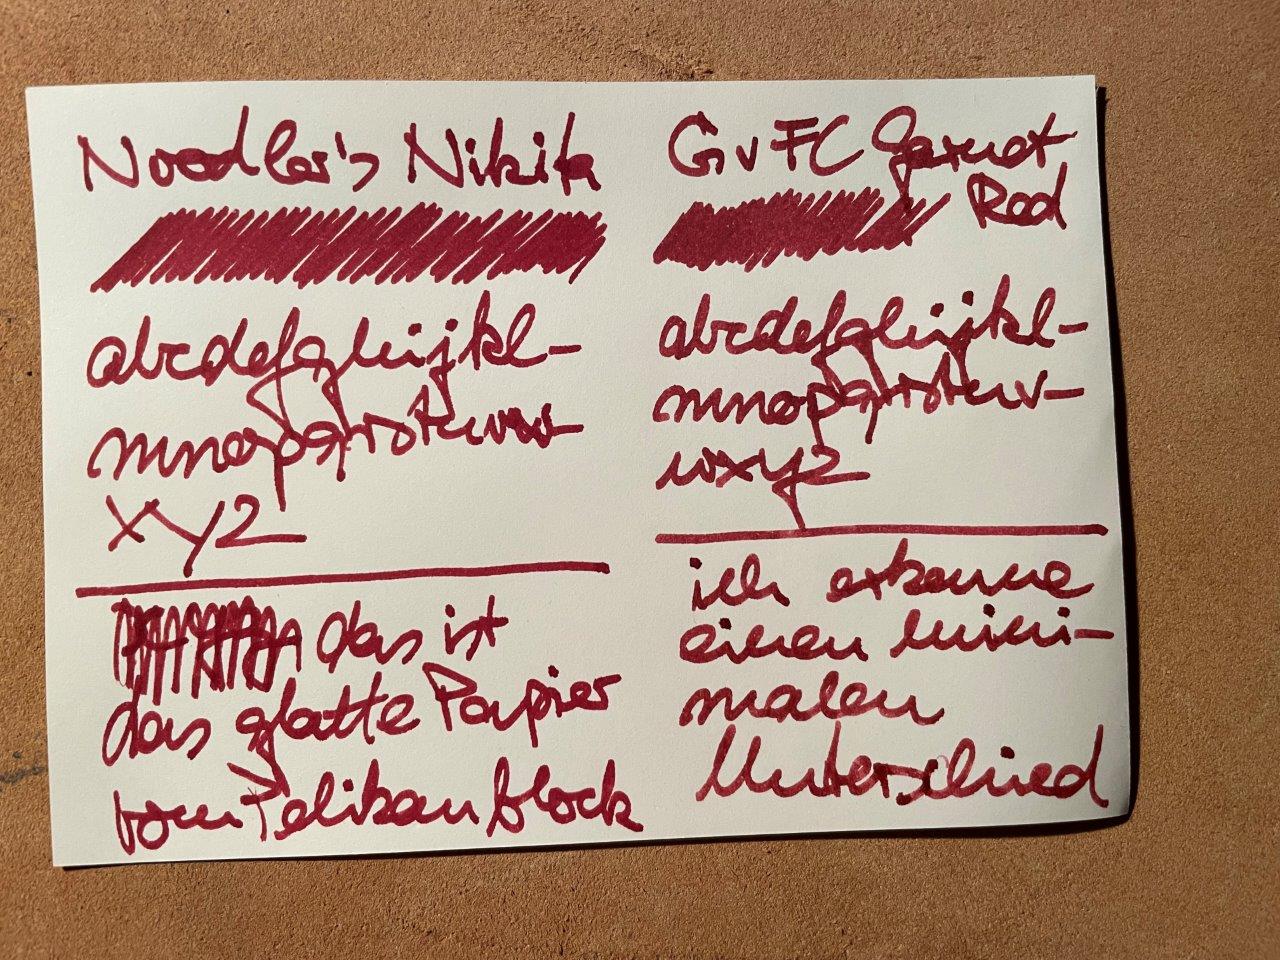 Noodler's Nikita
abcdefghijkl-
mnopqrstuvw-
xyz
das ist
das glatte Papier
vom Pelikanblock
GvFC Garnet
Red
abcdefghijkl-
mnopqrstuv-
wxyz
ich erkenne
einen mini-
malen
Unterschied